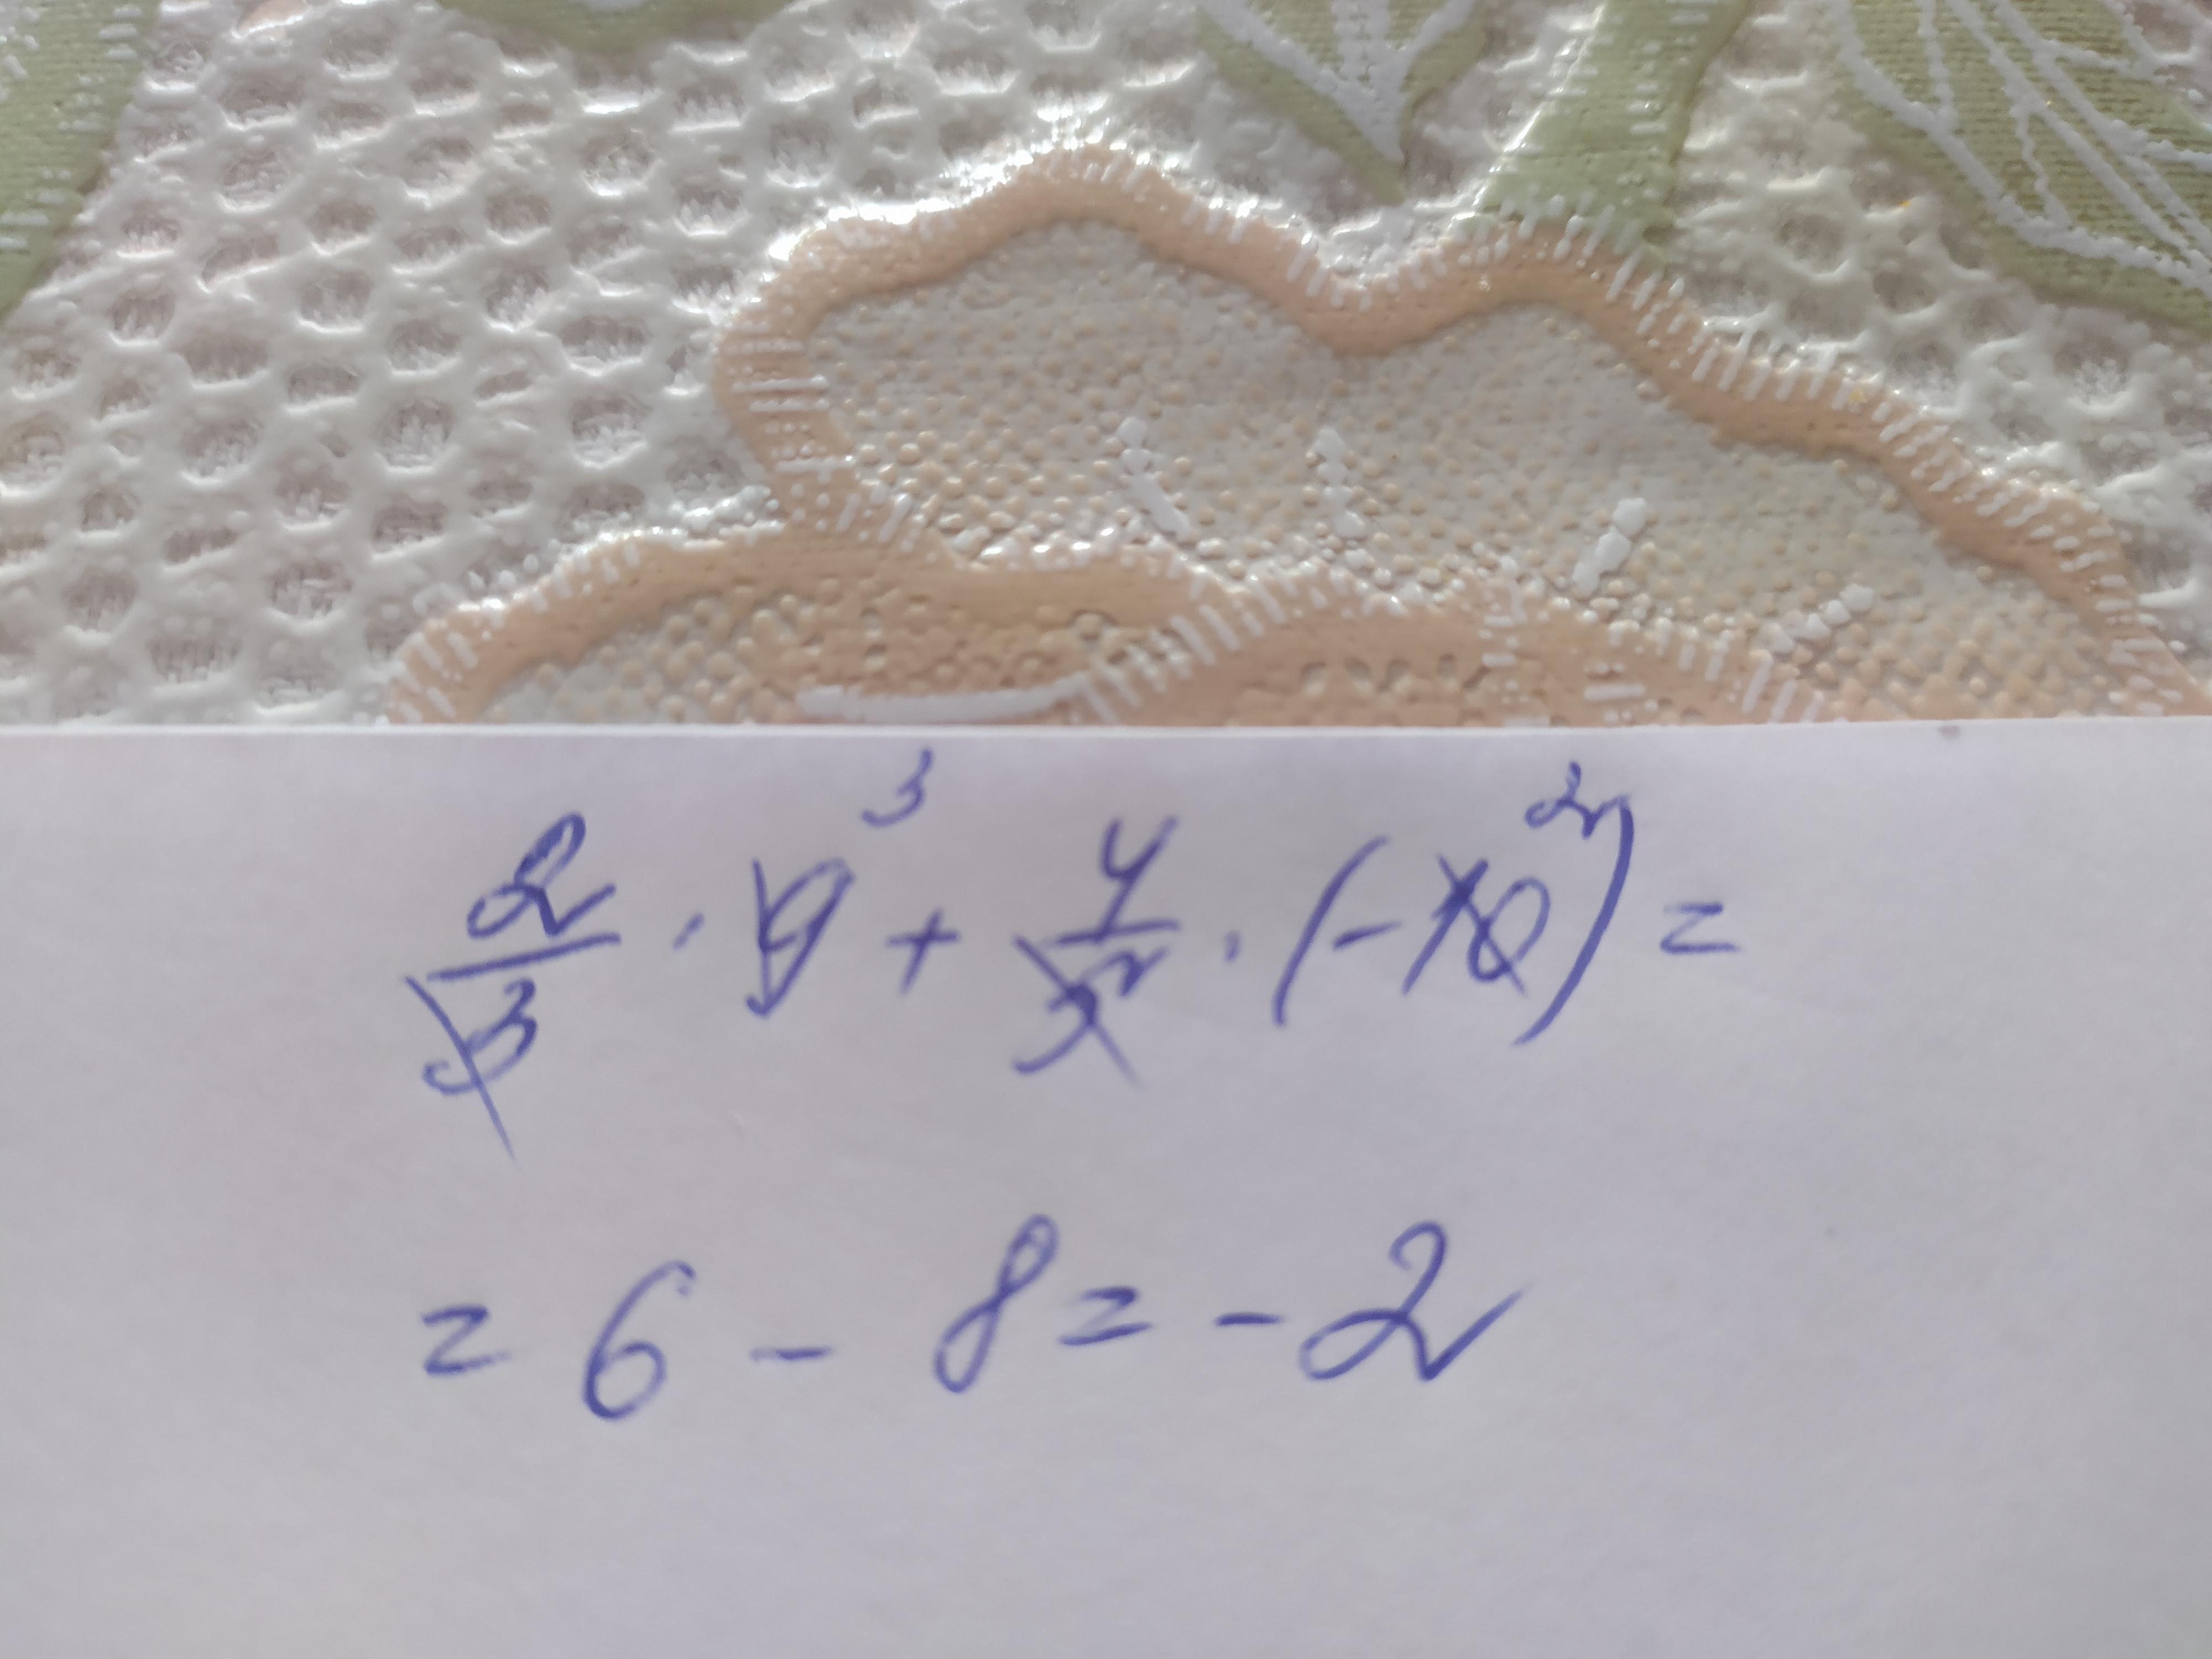 2/3 · 9³ + 4/5 · (-10²) =
= 6 - 8 = - 2